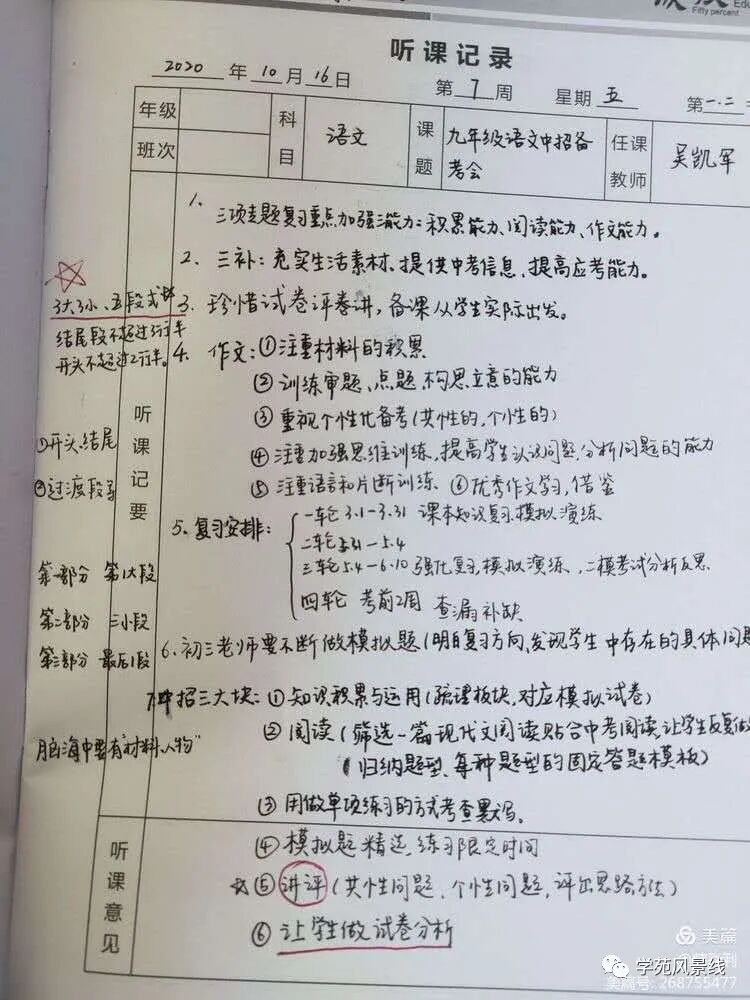 Fifty percent
听课记录
2020 年 10 月 16 日 第 7 周 星期 五 第一.二
年级
班次
科目 语文
课题 九年级语文中招备
考会
任课
教师 吴凯军
1. 三项专题复习重点加强三能力:积累能力、阅读能力、作文能力。
2. 三补:充实生活素材、提供中考信息、提高应考能力。
3. 珍惜试卷评卷讲,备课从学生实际出发。
4. 作文:①注重材料的积累
②训练审题、点题、构思立意的能力
③重视个性化备考(共性的,个性的)
④注重加强思维训练,提高学生认识问题,分析问题的能力
⑤注重语言和片断训练 ⑥优秀作文学习,借鉴
5. 复习安排:
一轮 3.1-3.31 课本知识复习.模拟演练
二轮 -5.4
三轮5.4-6.10 强化复习,模拟演练、二模考试分析反思
四轮 考前2周 查漏补缺
6. 初三老师要不断做模拟题(明白复习方向,发现学生中存在的具体问题
7. 中招三大块:①知识积累与运用(疏理板块,对应模拟试卷)
②阅读(筛选一篇现代文阅读贴合中考阅读,让学生反复做
(归纳题型,每种题型的固定答题模板)
③用做单项练习的方式考查默写。
④模拟题精选,练习限定时间
☆⑤讲评(共性问题、个性问题,评出思路方法)
⑥让学生做试卷分析
3大3小、五段式
结尾段不超过3行半
开头不超过2行半。
①开头结尾
②过渡段
第一部分 第1大段
第二部分 三小段
第三部分 最后1段
脑海中要有"材料、人物"
听课记要
听课意见
美篇
学苑风景线
美篇号: 268755477